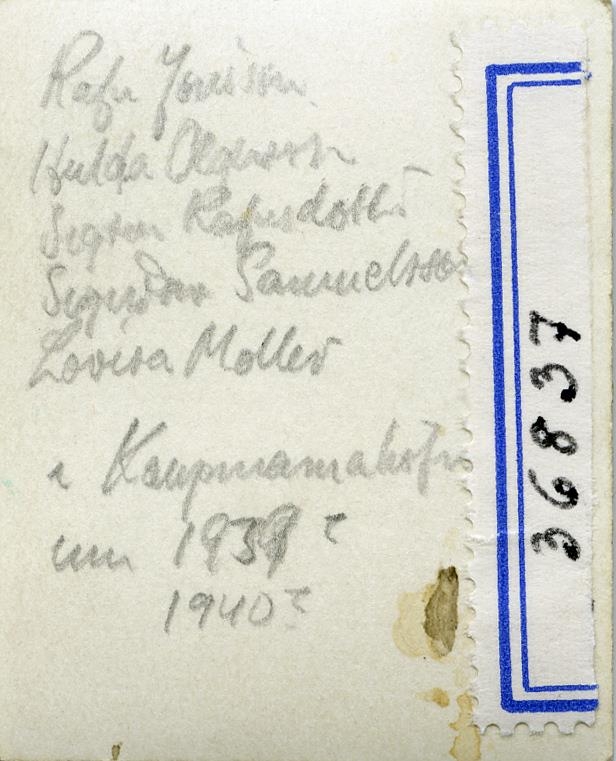 Rafn Jónsson
Hulda Ólafsson
Sigrun Rafnsdottir
Sigurður Samuelsson
Lovisa Möller
i Kaupmannahöfn
um 1939?
1940?
36837